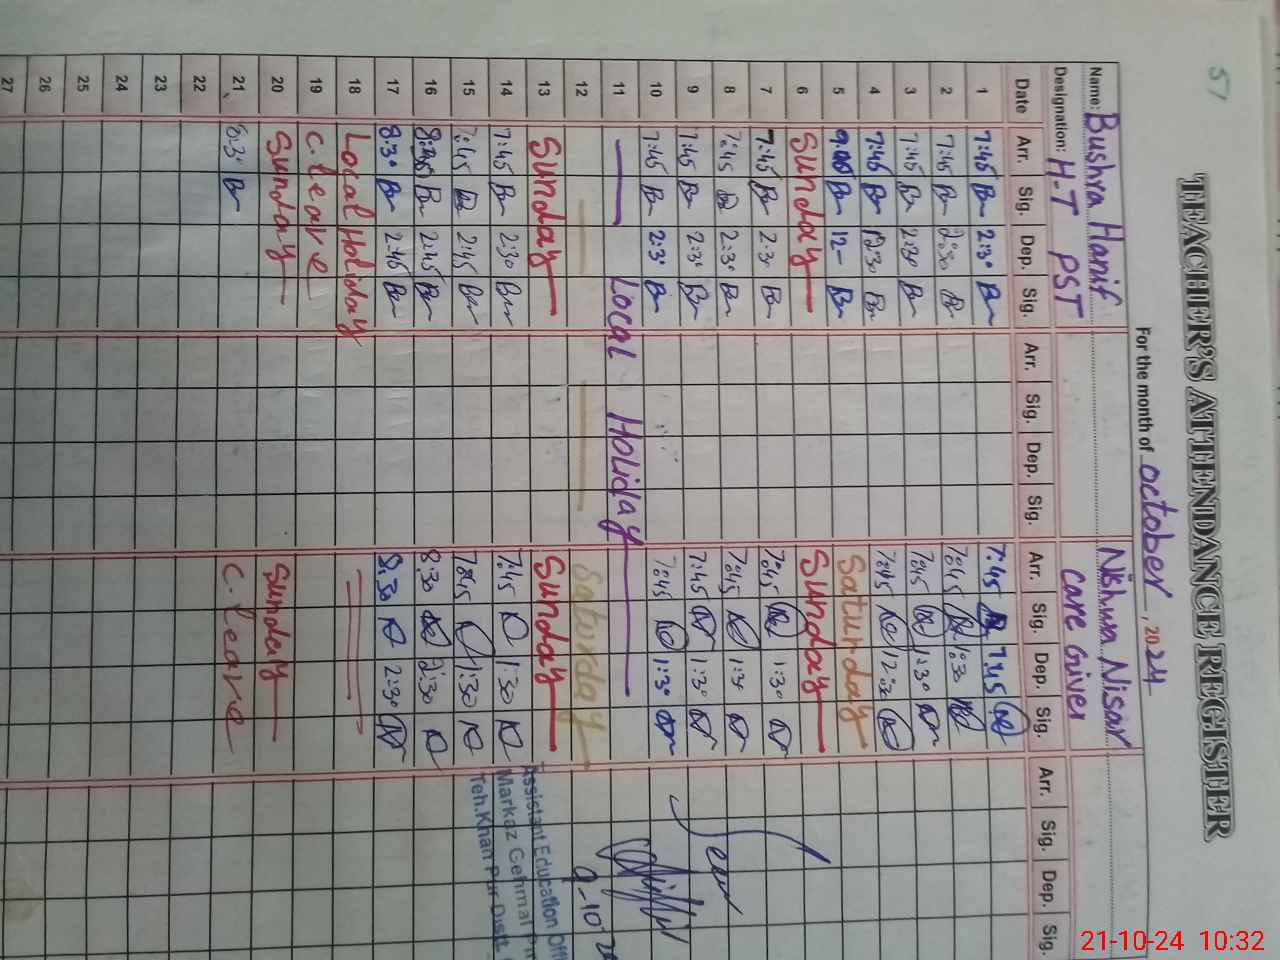 57
TEACHER'S ATTENDANCE REGISTER
For the month of October, 2024
Name: Bushra Hanif Nishwa Nisar
Designation: H.T PST Care Giver
Date Arr. Sig. Dep. Sig. Arr. Sig. Dep. Sig. Arr. Sig. Dep. Sig. Arr. Sig. Dep. Sig.
1 7:45 2:30 7:45
2 7:45 2:30 7:45 1:30
3 7:45 2:30 7:45 1:30
4 7:45 12:30 7:45 12:30
5 12 Saturday
6 Sunday Sunday
7 7:45 2:30 7:45 1:30
8 7:45 2:30 7:45 1:30
9 7:45 2:30 7:45 1:30
10 7:45 2:30 7:45 1:30
11 Local Holiday
12 Saturday
13 Sunday Sunday
14 7:45 2:30 7:45 1:30
15 7:45 2:45 7:45 1:30
16 2:45 8:30 2:30
17 8:30 2:45 8:30 2:30
18 Local Holiday
19 C. leave
20 Sunday Sunday
21 8:30 C. leave
22
23
24
25
26
27
Seen
9-10
Assistant Education
Markaz Gehmal
Teh. Khan Pur Distt.
21-10-24 10:32